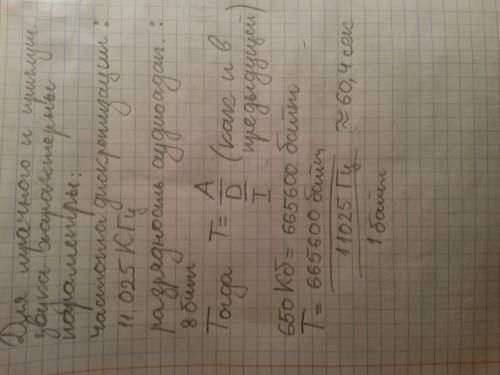 Для мрачного и приглуш.
звука характерны
параметры:
частота дискретизации:
11,025 КГц
разрядность аудиоадап.:
8 бит
Тогда T = A / D / I (как и в
предыдущей)
650 Кб = 665600 байт
T = 665600 байт / 11025 Гц / 1 байт ≈ 60,4 сек